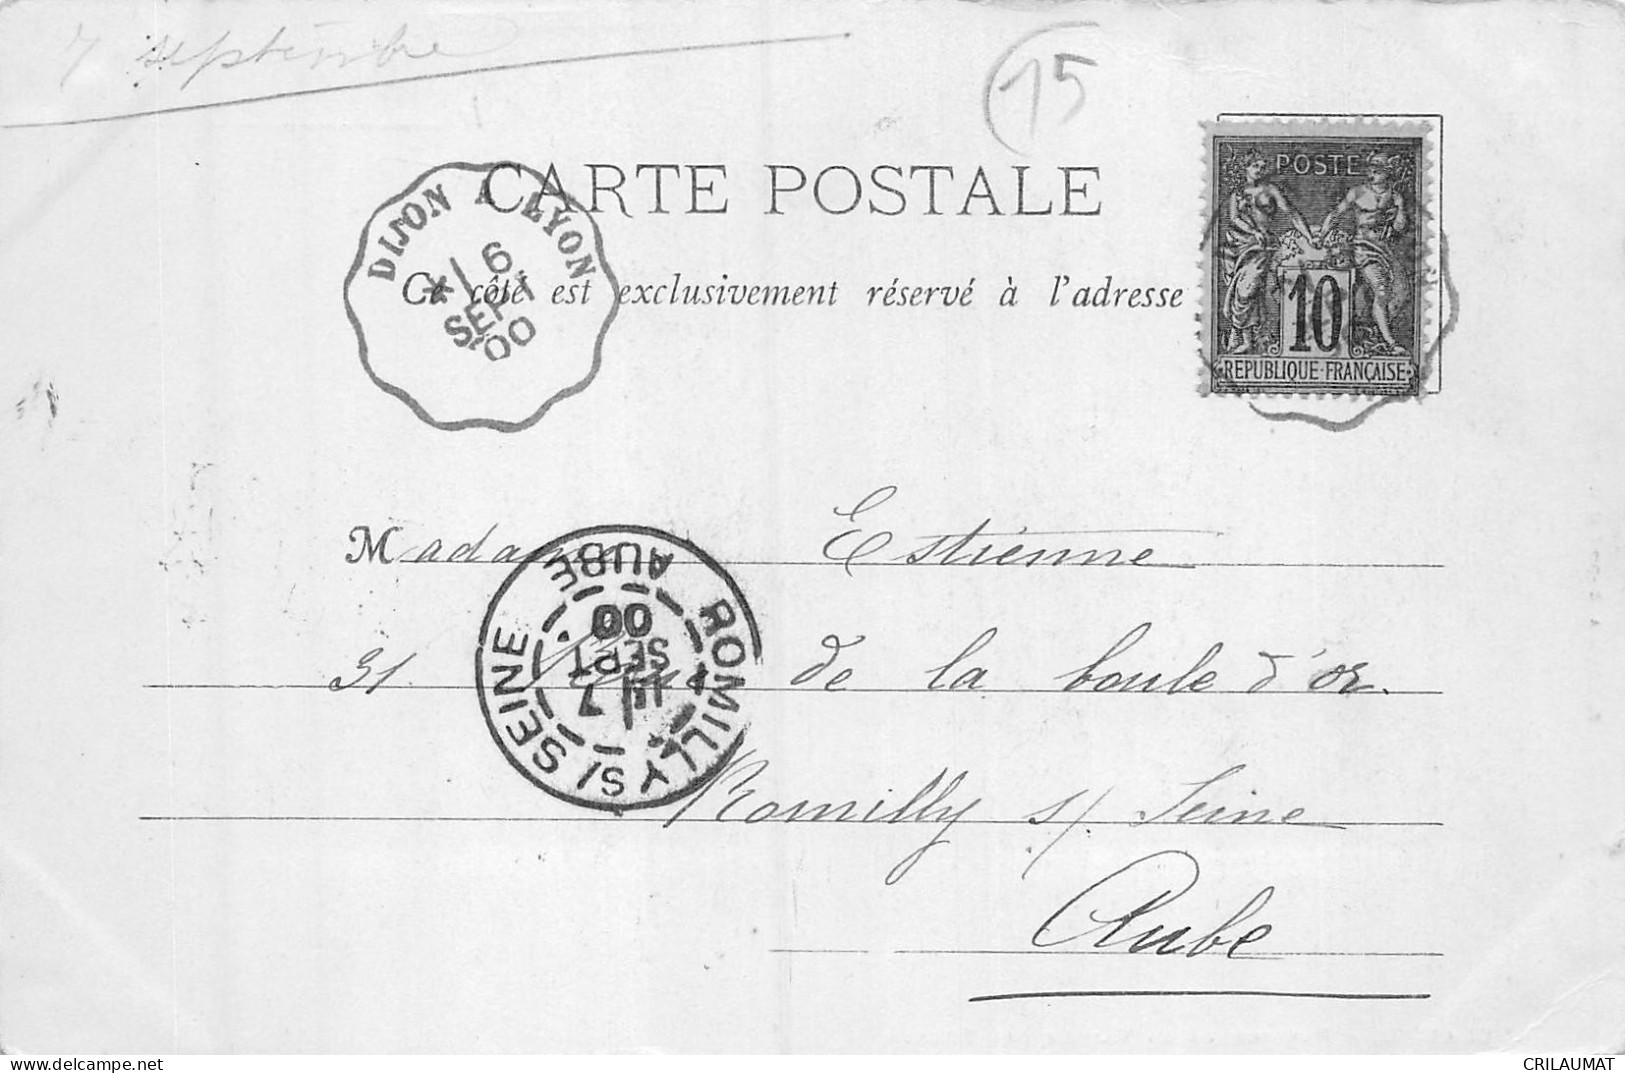 7 septembre
15
CARTE POSTALE
DIJON A LYON
6
SEPT
00
Ce côté est exclusivement réservé à l'adresse
POSTE
10
REPUBLIQUE·FRANÇAISE
Madame Estienne
31 de la boule d'or.
ROMILLY S/ SEINE
AUBE
7
SEPT
00
Romilly s/ Seine
Aube
CRILAUMAT